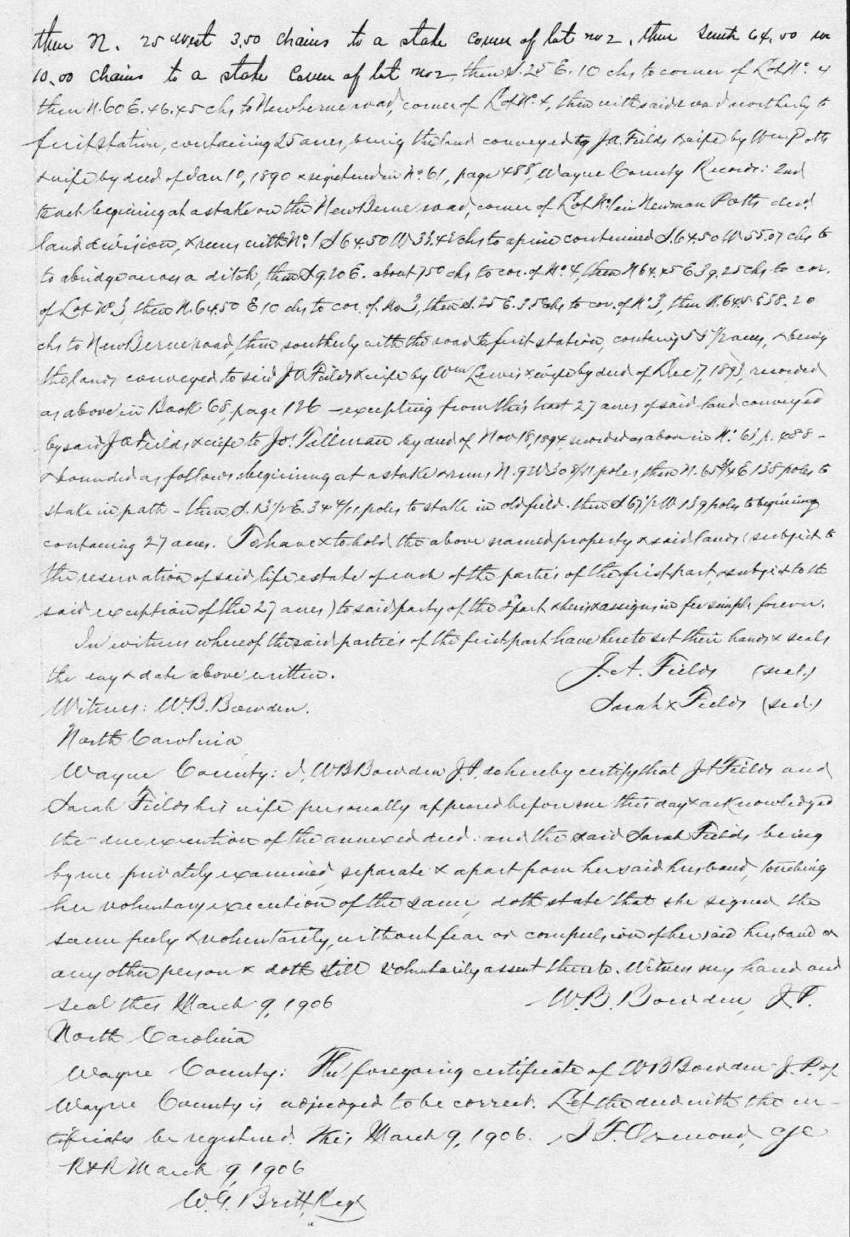 then N. 25 west 3,50 chains to a stake corner of lot no 2, then south 64.50 w
10,00 chains to a stake Corner of lot no 2, then S. 25 E. 10 chs to corner of Lot No. 4
then N. 60 E. 46.45 chs to Newberne road, corner of Lot No. 4, then with said road northerly to
first station, containing 25 acres, being the land conveyed to J.A. Fields & wife by Wm Potts
& wife by deed of Jan 10, 1890 & registered in No. 61, page 488, Wayne County Records: 2nd
tract begining at a stake on the New Berne road, corner of Lot No 1 in Newman Potts decd
land division, & runs with No. 1 S 64.50 W to a pine continued S. 64.50 W 55.07 chs to
to a bridge across a ditch, then S 9.20 E. about 7.50 chs to cor. of No. 4, then N 64.45 E 39.25 chs to cor.
of Lot No. 3, then N. 64.50 E 10 chs to cor. of No 3, then S. 25 E. 3.5 chs to cor. of No 3, then N. 64.5 E 38.20
chs to New Berne road, then southerly with the road to first station, containg 55 1/2 acres, & being
the lands conveyed to said J A Fields & wife by Wm Lewis & wife by deed of Dec 7, recorded
as above in Book 68, page 126 - excepting from this last 27 acres of said land conveyed
by said J A Fields & wife to Jos. Tillman by deed of Nov 18, 1894, recorded as above in No. p. 488 -
& bounded as follows: begining at a stake & runs N. 9 W 30 8/11 poles, then N. 65 3/4 E 138 poles to
stake in path - then S. 13 1/2 E. 34 4/11 poles to stake in old field. then S 67 1/2 W 139 poles to begining
containing 27 acres. To have & to hold the above named property & said lands (subject to
the reservation of said life estate of each of the parties of the first part, & subject to the
said exception of the 27 acres) to said party of the 2 part & heirs & assigns in fee simple forever.
In witness whereof the said parties of the first part have hereto set their hands & seals
the day & date above written. J. A. Fields (seal.)
Witness: W. B. Bowden. Sarah x Fields (seal.)
North Carolina
Wayne County: I, W B Bowden J.P. do hereby certify that J A Fields and
Sarah Fields his wife personally appeared before me this day & acknowledged
the due execution of the annexed deed. and the said Sarah Fields being
by me privately examined, separate & apart from her said husband, touching
her voluntary execution of the same, doth state that she signed the
same freely & voluntarily, without fear or compulsion of her said husband or
any other person & doth still voluntarily assent thereto. Witness my hand and
seal this March 9, 1906 W. B. Bowden, J.P.
North Carolina
Wayne County: The foregoing certificate of W B Bowden J. P. of
Wayne County is adjudged to be correct. Let the deed with the cer-
tificates be registered. This March 9, 1906. I F Ormond, CSC
R & R March 9, 1906
W. G. Britt, Reg